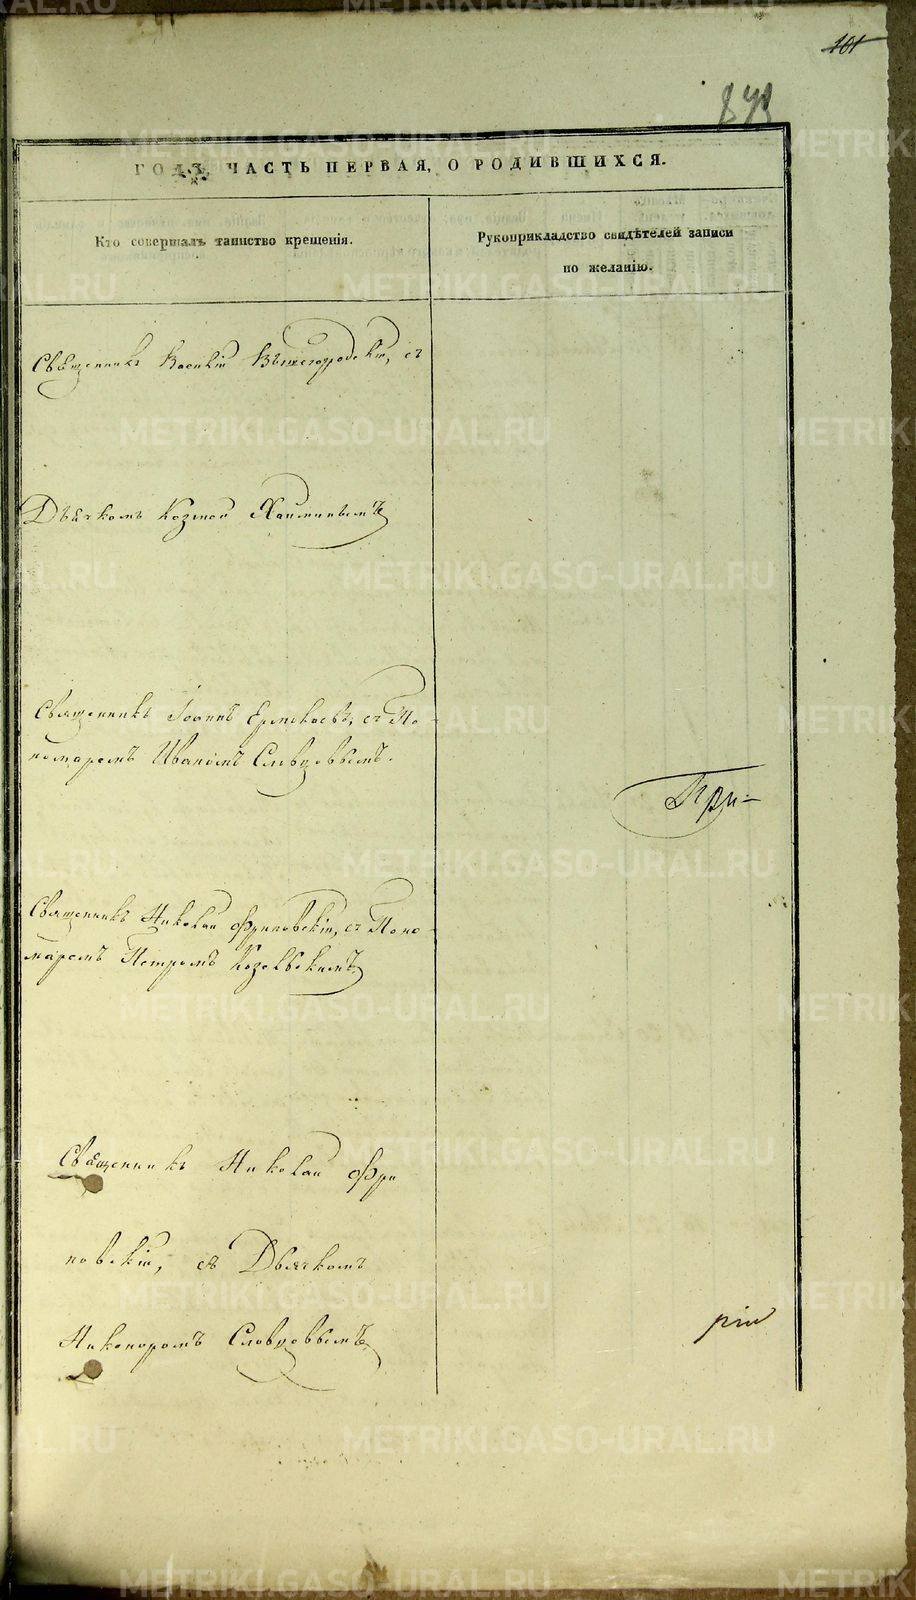 101
ГОДЪ, ЧАСТЬ ПЕРВАЯ, О РОДИВШИХСЯ.
Кто совершалъ таинство крещенія.
Рукоприкладство свидѣтелей записи
по желанію.
Священникъ Василій Вышегородскій, съ
Дьячкомъ Козмою
Священникъ Іоаннъ Ермолаевъ, съ По-
номаремъ Иваномъ Словцовымъ.
При-
Священникъ Николай Фриновскій, съ Поно-
маремъ Петромъ Козельскимъ
Священникъ Николай Фри
новскій, съ Дьячкомъ
Никаноромъ Словцовымъ
METRIKI.GASO-URAL.RU